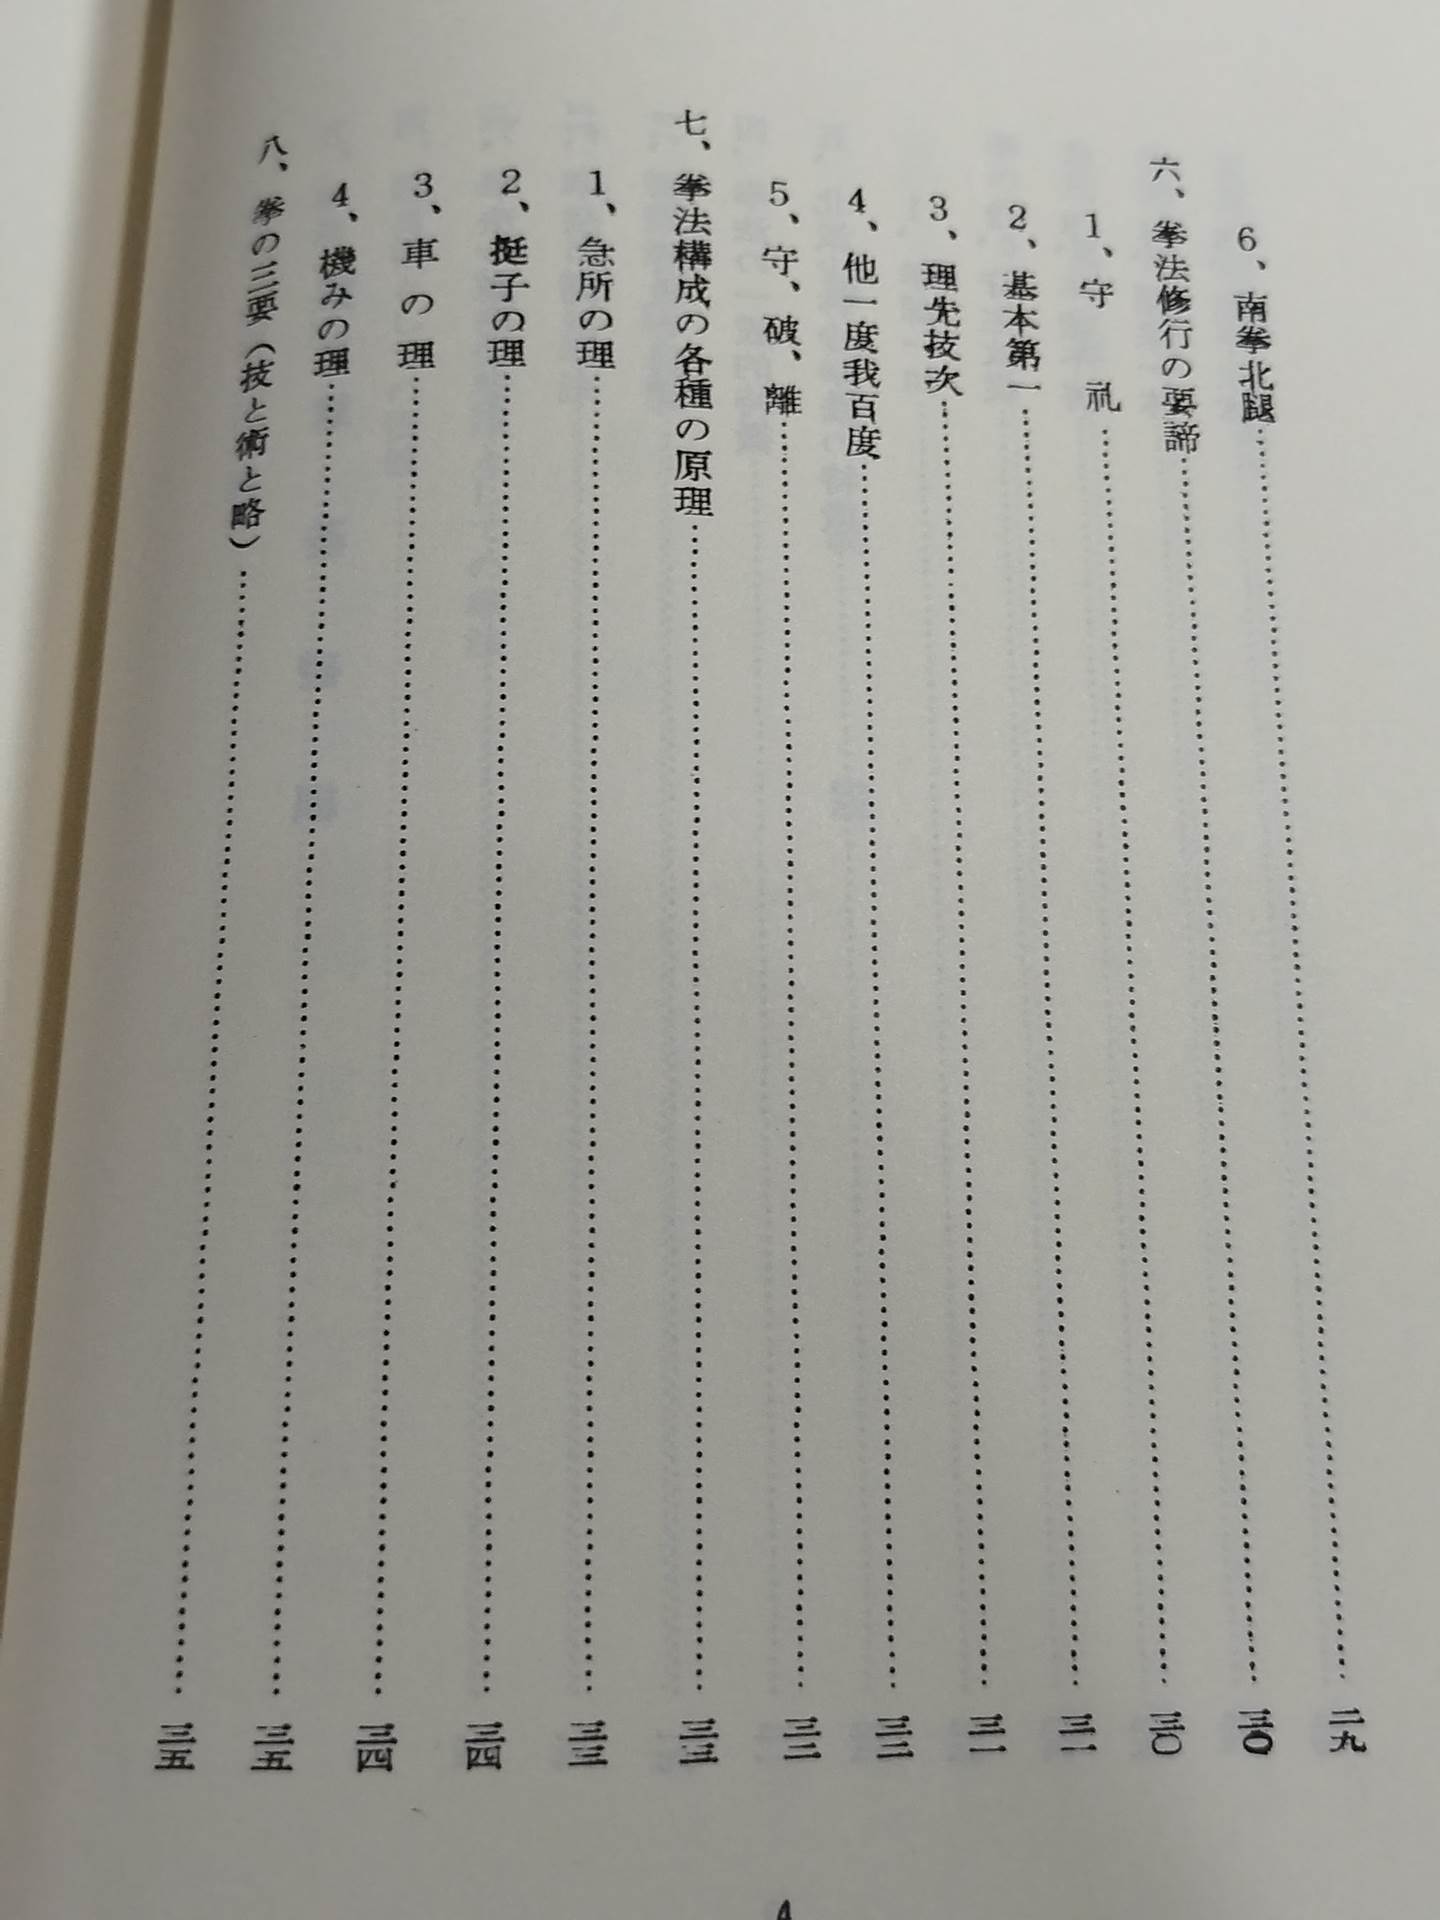 6、南拳北腿……………………二九
六、拳法修行の要諦……………………三〇
1、守　礼……………………三〇
2、基本第一……………………三一
3、理先技次……………………三一
4、他一度我百度……………………三二
5、守、破、離……………………三二
七、拳法構成の各種の原理……………………三三
1、急所の理……………………三三
2、挺子の理……………………三四
3、車の理……………………三四
4、機みの理……………………三五
八、拳の三要（技と術と略）……………………三五
4